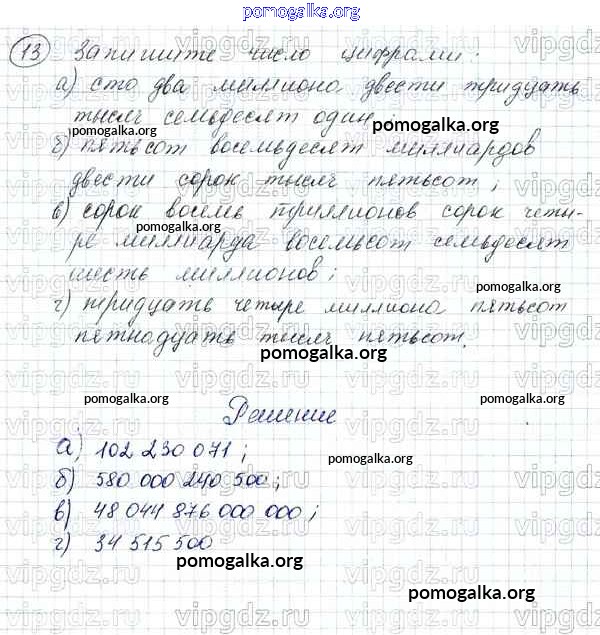 pomogalka.org
13 Запишите число цифрами:
а) сто два миллиона двести тридцать
тысяч семьдесят один;
pomogalka.org
pomogalka.org
б) пятьсот восемьдесят миллиардов
двести сорок тысяч пятьсот;
в) сорок восемь триллионов сорок четы-
pomogalka.org
ре миллиарда восемьсот семьдесят
шесть миллионов;
pomogalka.org
г) тридцать четыре миллиона пятьсот
пятнадцать тысяч пятьсот.
pomogalka.org
pomogalka.org
Решение
а) 102 230 071;
pomogalka.org
б) 580 000 240 500;
в) 48 044 876 000 000;
г) 34 515 500
pomogalka.org
pomogalka.org